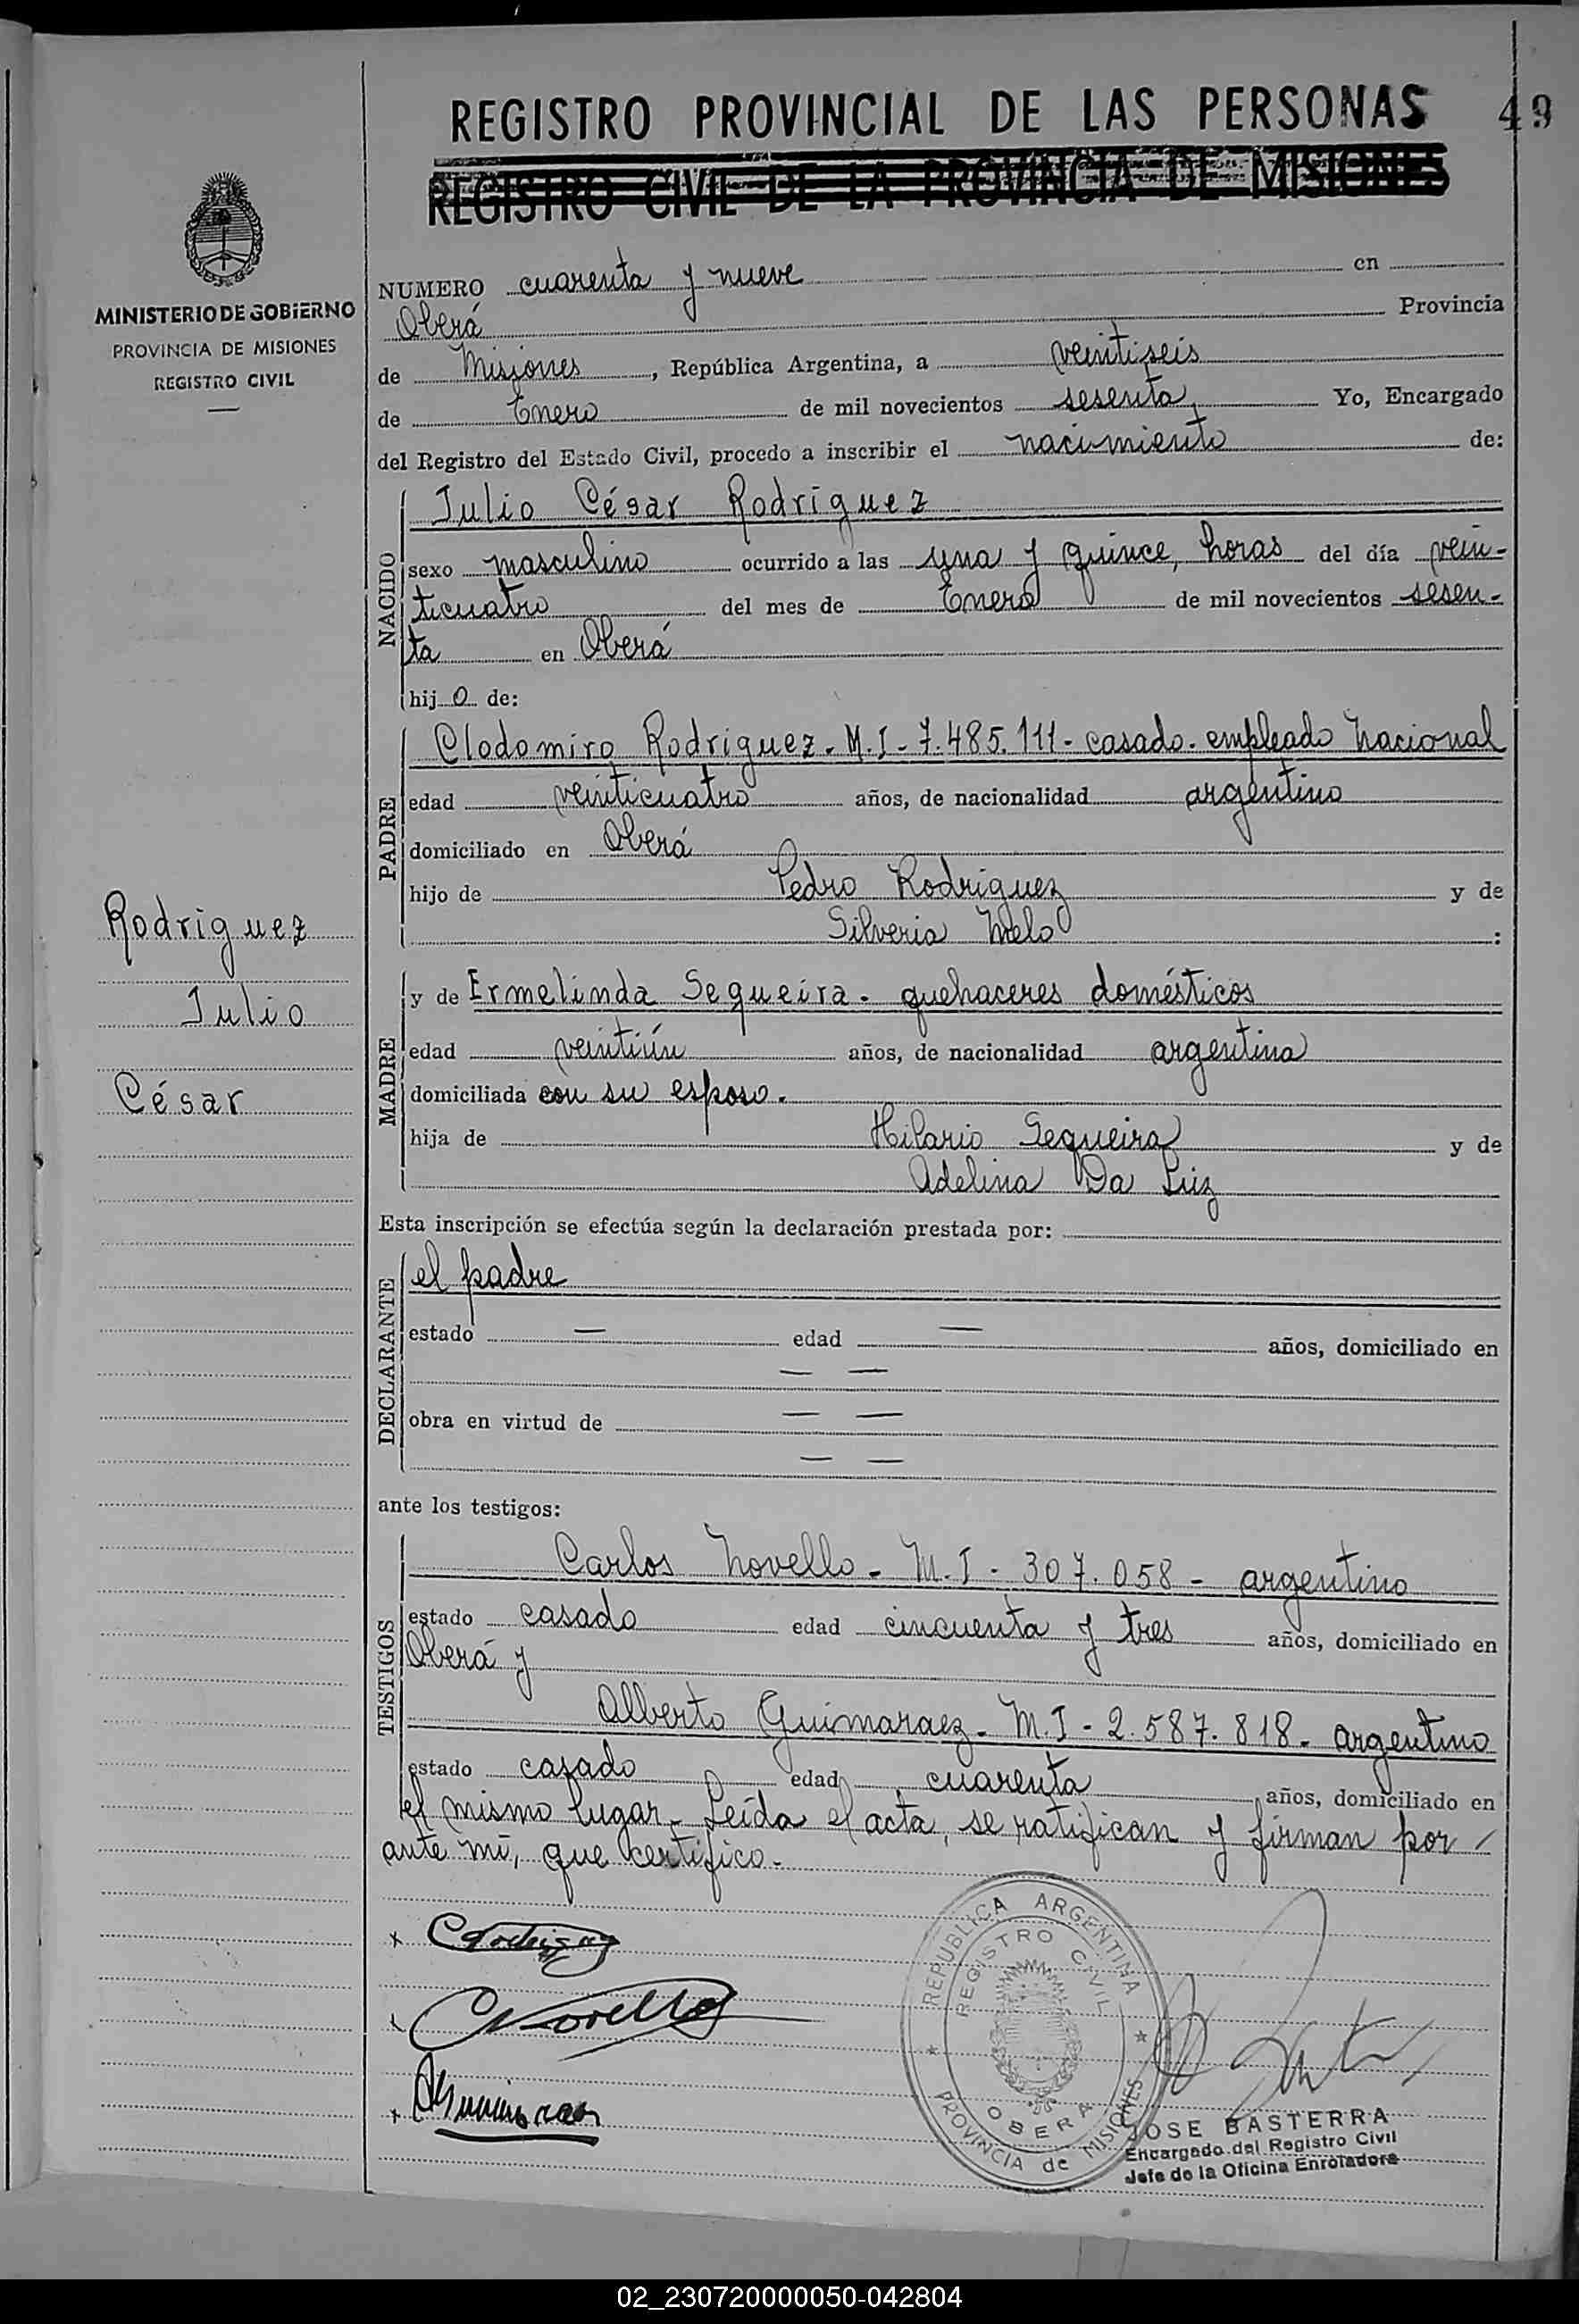 REGISTRO PROVINCIAL DE LAS PERSONAS 49
REGISTRO CIVIL DE LA PROVINCIA DE MISIONES
MINISTERIO DE GOBIERNO
PROVINCIA DE MISIONES
REGISTRO CIVIL
NUMERO cuarenta y nueve en
Oberá Provincia
de Misiones, República Argentina, a veintiseis
de Enero de mil novecientos sesenta, Yo, Encargado
del Registro del Estado Civil, procedo a inscribir el nacimiento de:
NACIDO
Julio César Rodriguez
sexo masculino ocurrido a las una y quince, horas del día vein-
ticuatro del mes de Enero de mil novecientos sesen-
ta en Oberá
hijo de:
PADRE
Clodomiro Rodriguez - M.I - 7.485.111 - casado - empleado Nacional
edad veinticuatro años, de nacionalidad argentino
domiciliado en Oberá
hijo de Pedro Rodriguez y de
Silveria Melo :
Rodriguez
Julio
César
MADRE
y de Ermelinda Sequeira - quehaceres domésticos
edad veintiún años, de nacionalidad argentina
domiciliada con su esposo.
hija de Hilario Sequeira y de
Adelina Da Luz
Esta inscripción se efectúa según la declaración prestada por:
DECLARANTE
el padre
estado — edad — años, domiciliado en
— —
obra en virtud de — —
— —
ante los testigos:
TESTIGOS
Carlos Novello - M.I - 307.058 - argentino
estado casado edad cincuenta y tres años, domiciliado en
Oberá y
Alberto Guimaraez - M.I - 2.587.818 - argentino
estado casado edad cuarenta años, domiciliado en
el mismo lugar - Leída el acta, se ratifican y firman por
ante mí, que certifico -
C Rodriguez
C Novello
REPUBLICA ARGENTINA
REGISTRO CIVIL
OBERA
PROVINCIA de MISIONES
JOSE BASTERRA
Encargado del Registro Civil
Jefe de la Oficina Enroladora
02_230720000050-042804